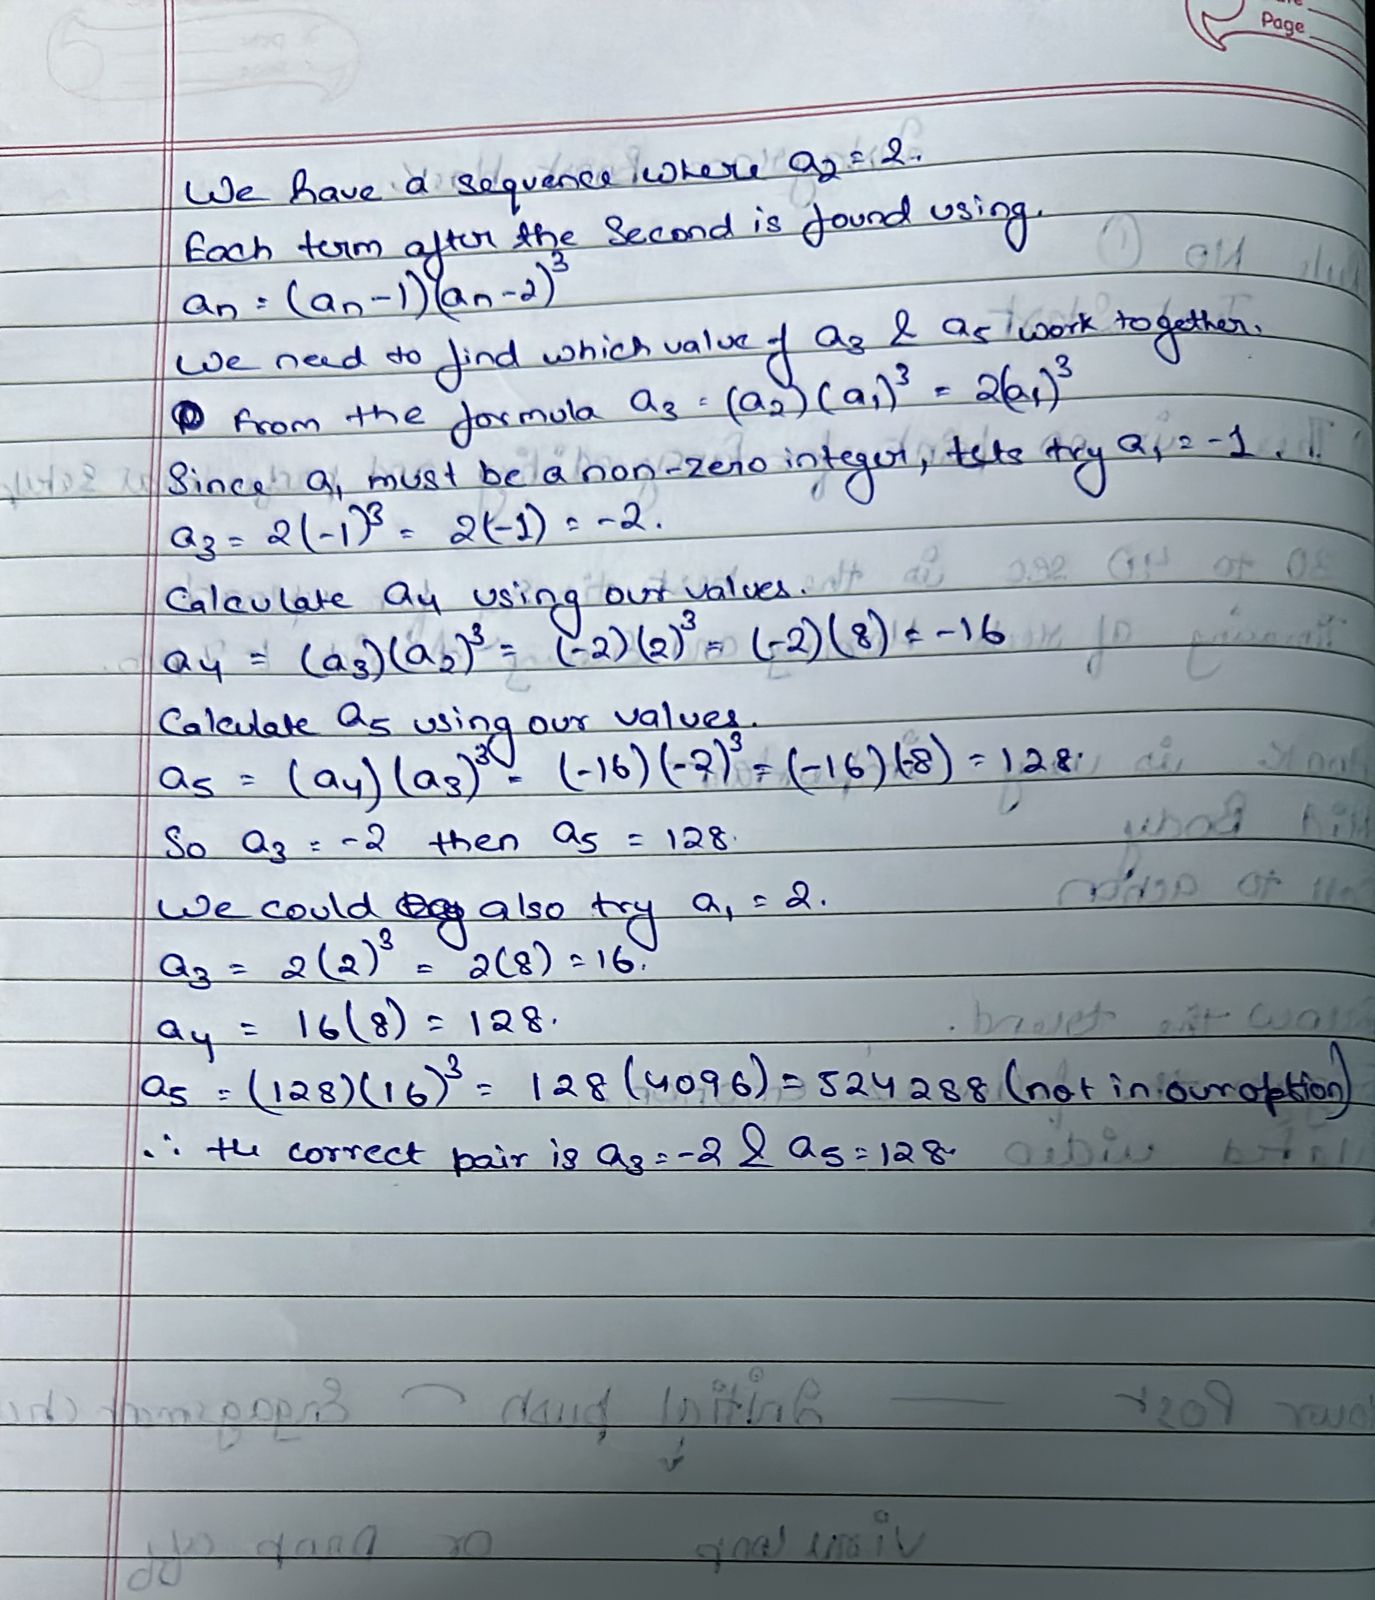 Page
We have a sequence where a₂ = 2.
Each term after the second is found using.
an = (an-1)(an-2)³
We need to find which value of a₃ & a₅ work together.
From the formula a₃ = (a₂)(a₁)³ = 2(a₁)³
Since a₁ must be a non-zero integer, lets try a₁ = -1.
a₃ = 2(-1)³ = 2(-1) = -2.
Calculate a₄ using our values.
a₄ = (a₃)(a₂)³ = (-2)(2)³ = (-2)(8) = -16
Calculate a₅ using our values.
a₅ = (a₄)(a₃)³ = (-16)(-2)³ = (-16)(-8) = 128.
So a₃ = -2 then a₅ = 128.
We could also try a₁ = 2.
a₃ = 2(2)³ = 2(8) = 16.
a₄ = 16(8) = 128.
a₅ = (128)(16)³ = 128(4096) = 524288 (not in our option)
∴ the correct pair is a₃ = -2 & a₅ = 128.